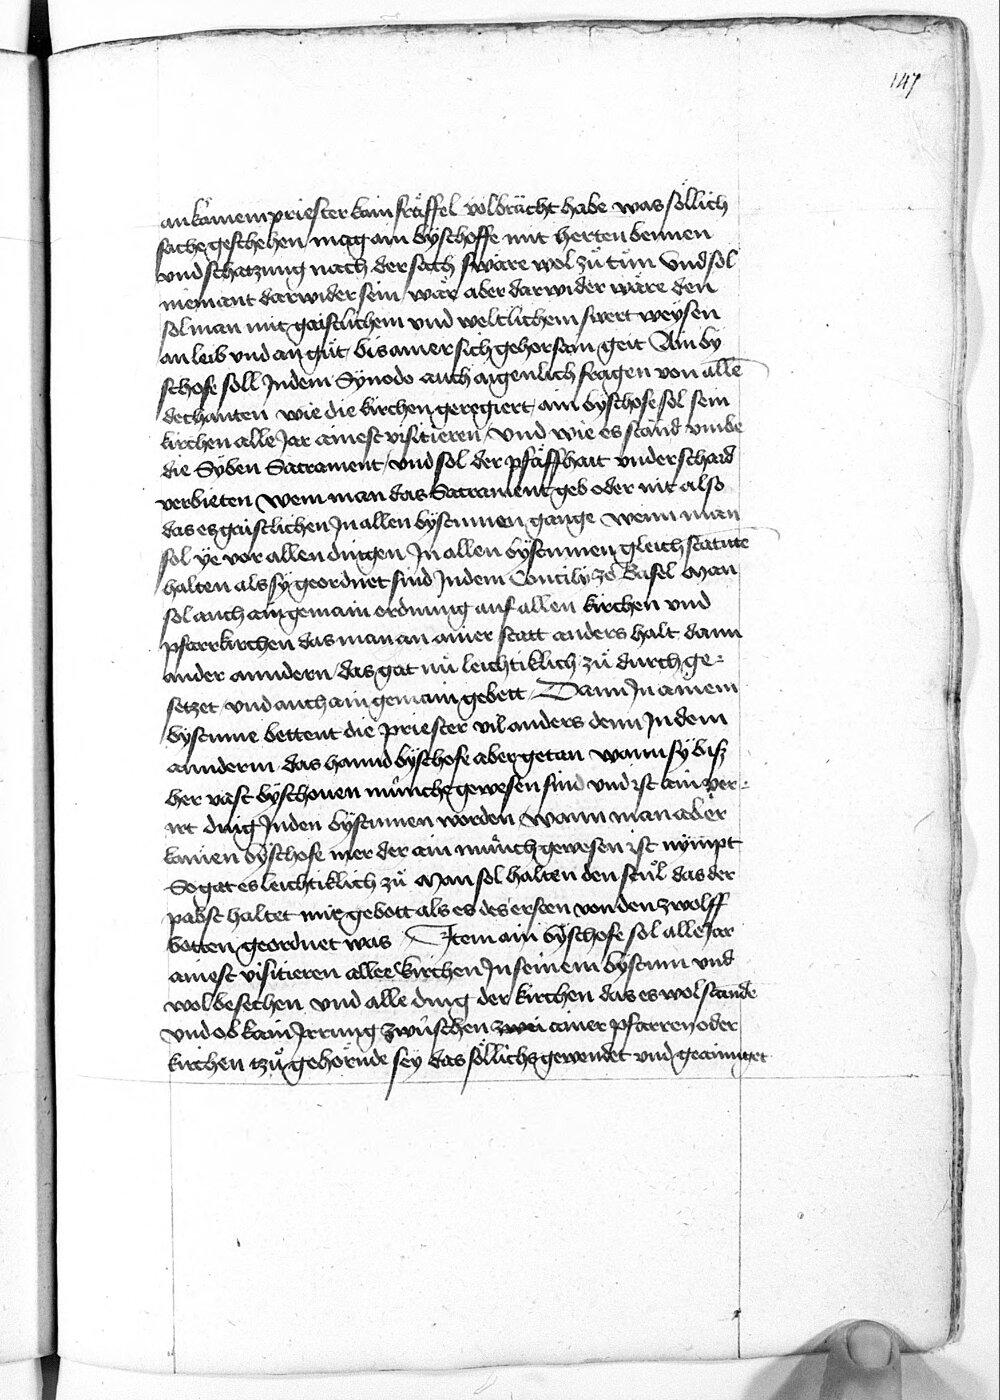 147
an kainem priester kain fräffel volbrücht habe was söllich
sache geschehen mag ain byschoffe mit herten bennen
vnd schatzung nach der sach swäre wol zu tun Vnd sol
niemant darwider sein wär aber darwider wäre den
sol man mit gaistlichem vnd weltlichem swert weysen
an leib vnd an gut bis amer sich gehorsam geit Ain by
schofe soll Jn dem Synodo auch aigenlich fragen von alle
dechanten wie die kirchen geregiert ain byschofe sol sein
kirchen alle Jar ainest visitieren vnd wie es stand vmbe
die Syben Sacrament vnd sol der pfaffhait vnderschaid
verbieten wem man das Sacrament geb oder nit also
das es gaistlichen Jn allen bystumen gange wenn man
sol ye vor allen dingen Jn allen bystumen gleich statute
halten als sy geordnet sind Jn dem Concily ze Basel Man
sol auch ain gemain ordnung auf allen kirchen vnd
pfarrkirchen das man an ainer statt anders halt dann
an der anndern das gat nu leichtiklich zu durch ge-
setzet vnd auch ain gemain gebett Dann Jn ainem
bystume bettent die priester vil anders denn Jn dem
anndern das hannd byschofe aber getan wann sy biß
her vast byschouen münche gewesen sind vnd ist ain ver-
irt ding Jn den bystumen worden wann man aber
kainen byschofe mer der ain münch gewesen ist nympt
So gat es leichtiklich zu Man sol halten den stul das der
pabst haltet mit gebott als es des ersten von den zwolff
botten geordnet was Jtem ain byschofe sol alle Jar
ainest visitieren aller kirchen Jn seinem bystum vnd
wol besechen vnd alle ding der kirchen das es wol stande
vnd ob kain Jrrung zwüschen zwei ainer pfarren oder
kirchen tzu gehörnde sey das söllichs gewendet vnd geainiget